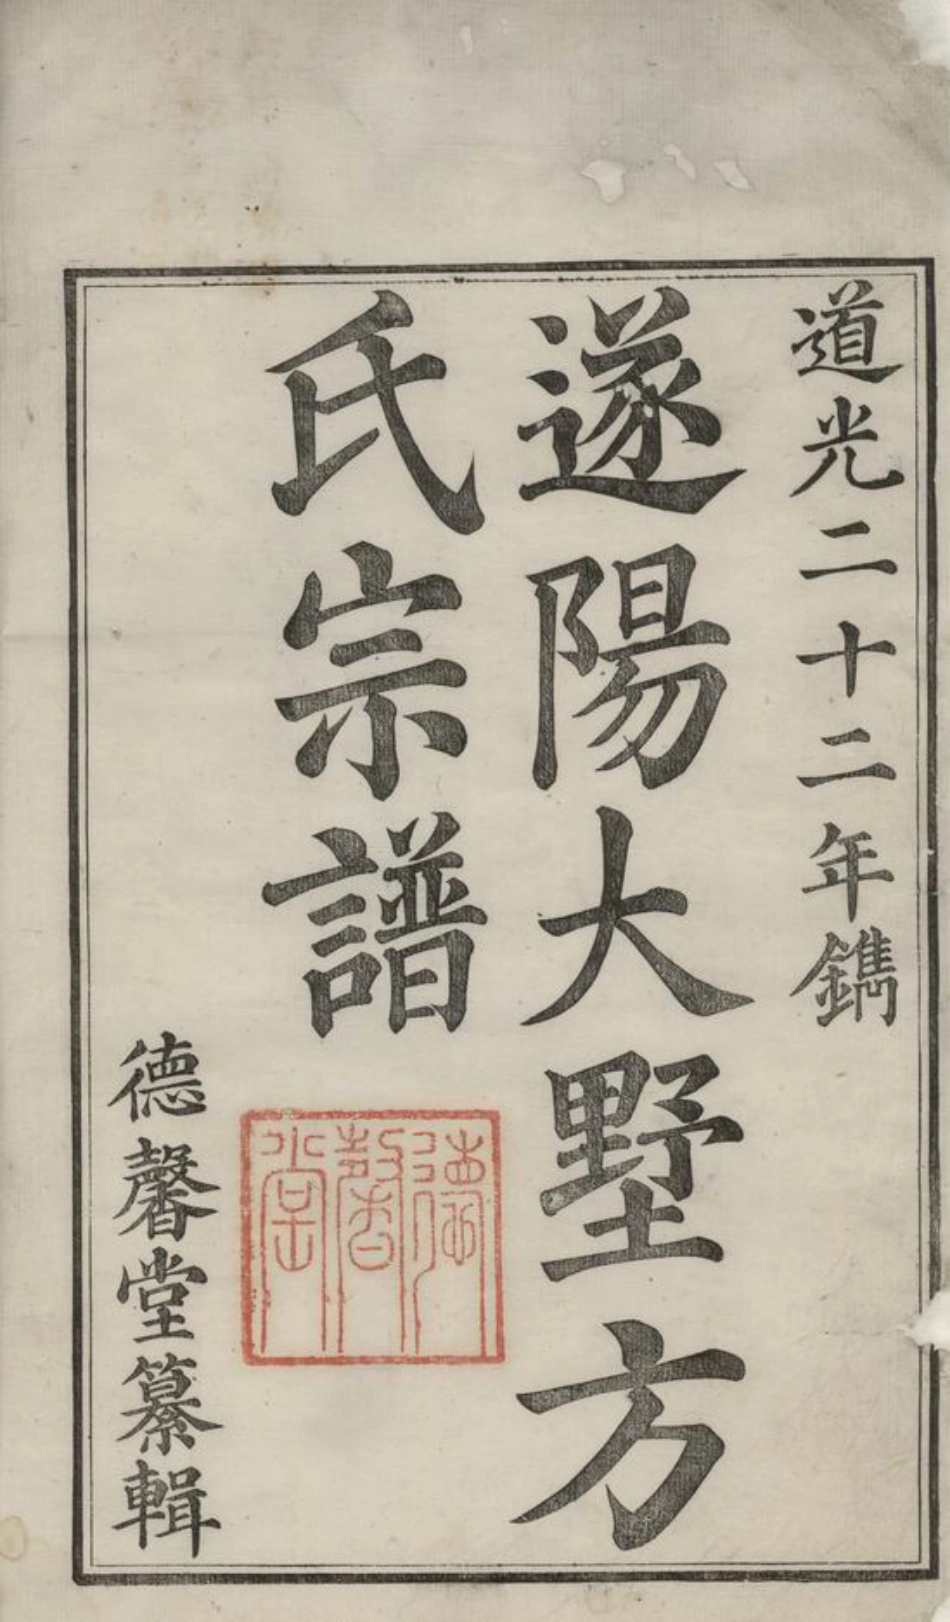 道光二十二年鐫
遂陽大墅方
氏宗譜
德馨堂
德馨堂纂輯